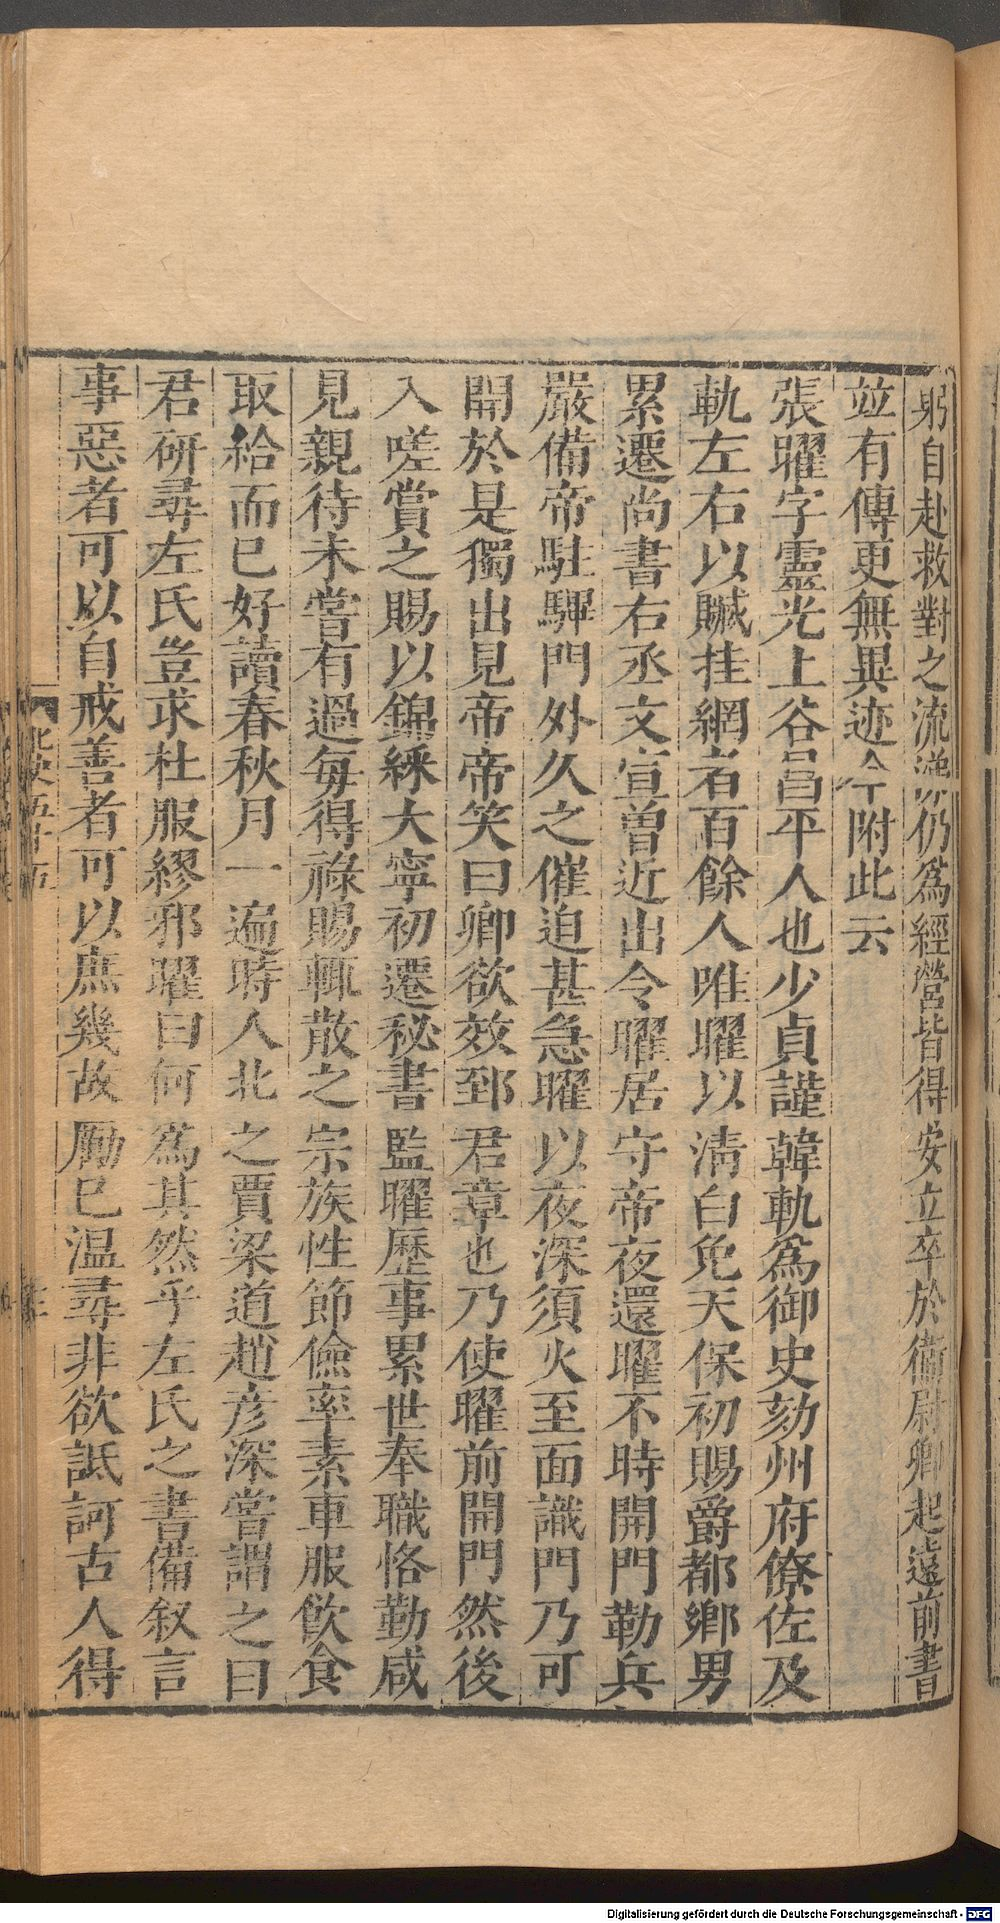 躬自赴救對之流涕仍爲經營皆得安立卒於衞尉卿起遠前書
竝有傳更無異迹今附此云
張曜字靈光上谷昌平人也少貞謹韓軌爲御史劾州府僚佐及
軌左右以贓挂網者百餘人唯曜以淸白免天保初賜爵都鄕男
累遷尚書右丞文宣曽近出令曜居守帝夜還曜不時開門勒兵
嚴備帝駐驆門外久之催迫甚急曜以夜深須火至面識門乃可
開於是獨出見帝帝笑曰卿欲效郅君章也乃使曜前開門然後
入嗟賞之賜以錦綵大寧初遷秘書監曜歷事累世奉職恪勤咸
見親待未嘗有過每得祿賜輒散之宗族性節儉率素車服飮食
取給而已好讀春秋月一遍時人北之賈梁道趙彥深嘗謂之曰
君研尋左氏豈求杜服繆邪曜曰何爲其然乎左氏之書備叙言
事惡者可以自戒善者可以庶幾故厲已溫尋非欲詆訶古人得
北史五十五
Digitalisierung gefördert durch die Deutsche Forschungsgemeinschaft - DFG